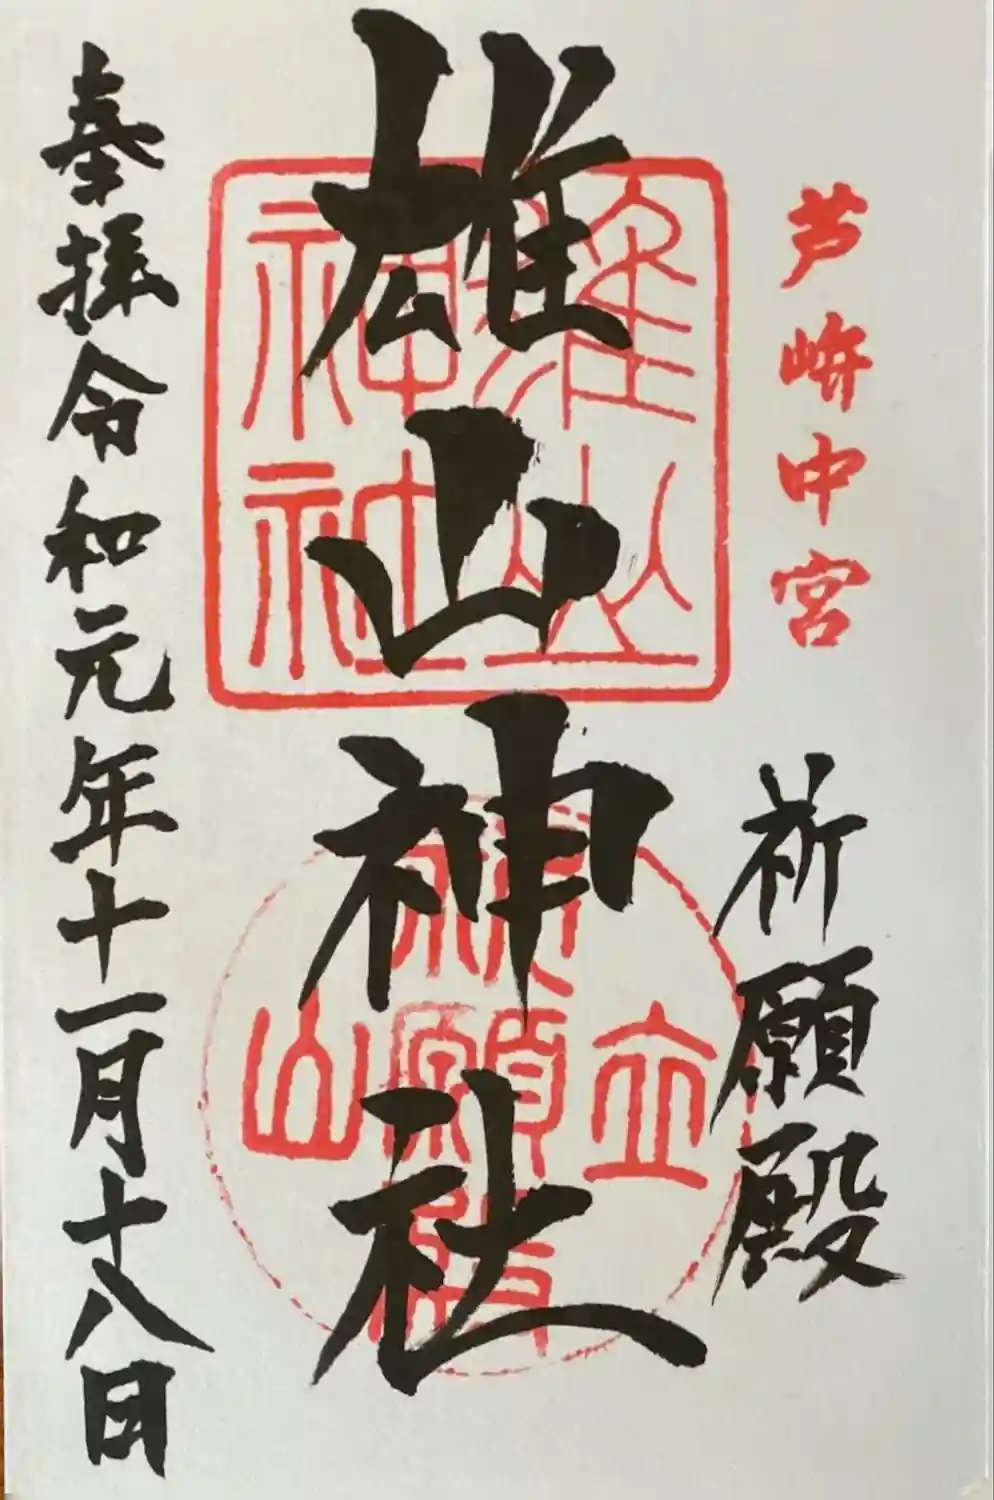 芦峅中宮
祈願殿
雄山神社
奉拝令和元年十一月十八日
雄山
神社
立山
祈願殿